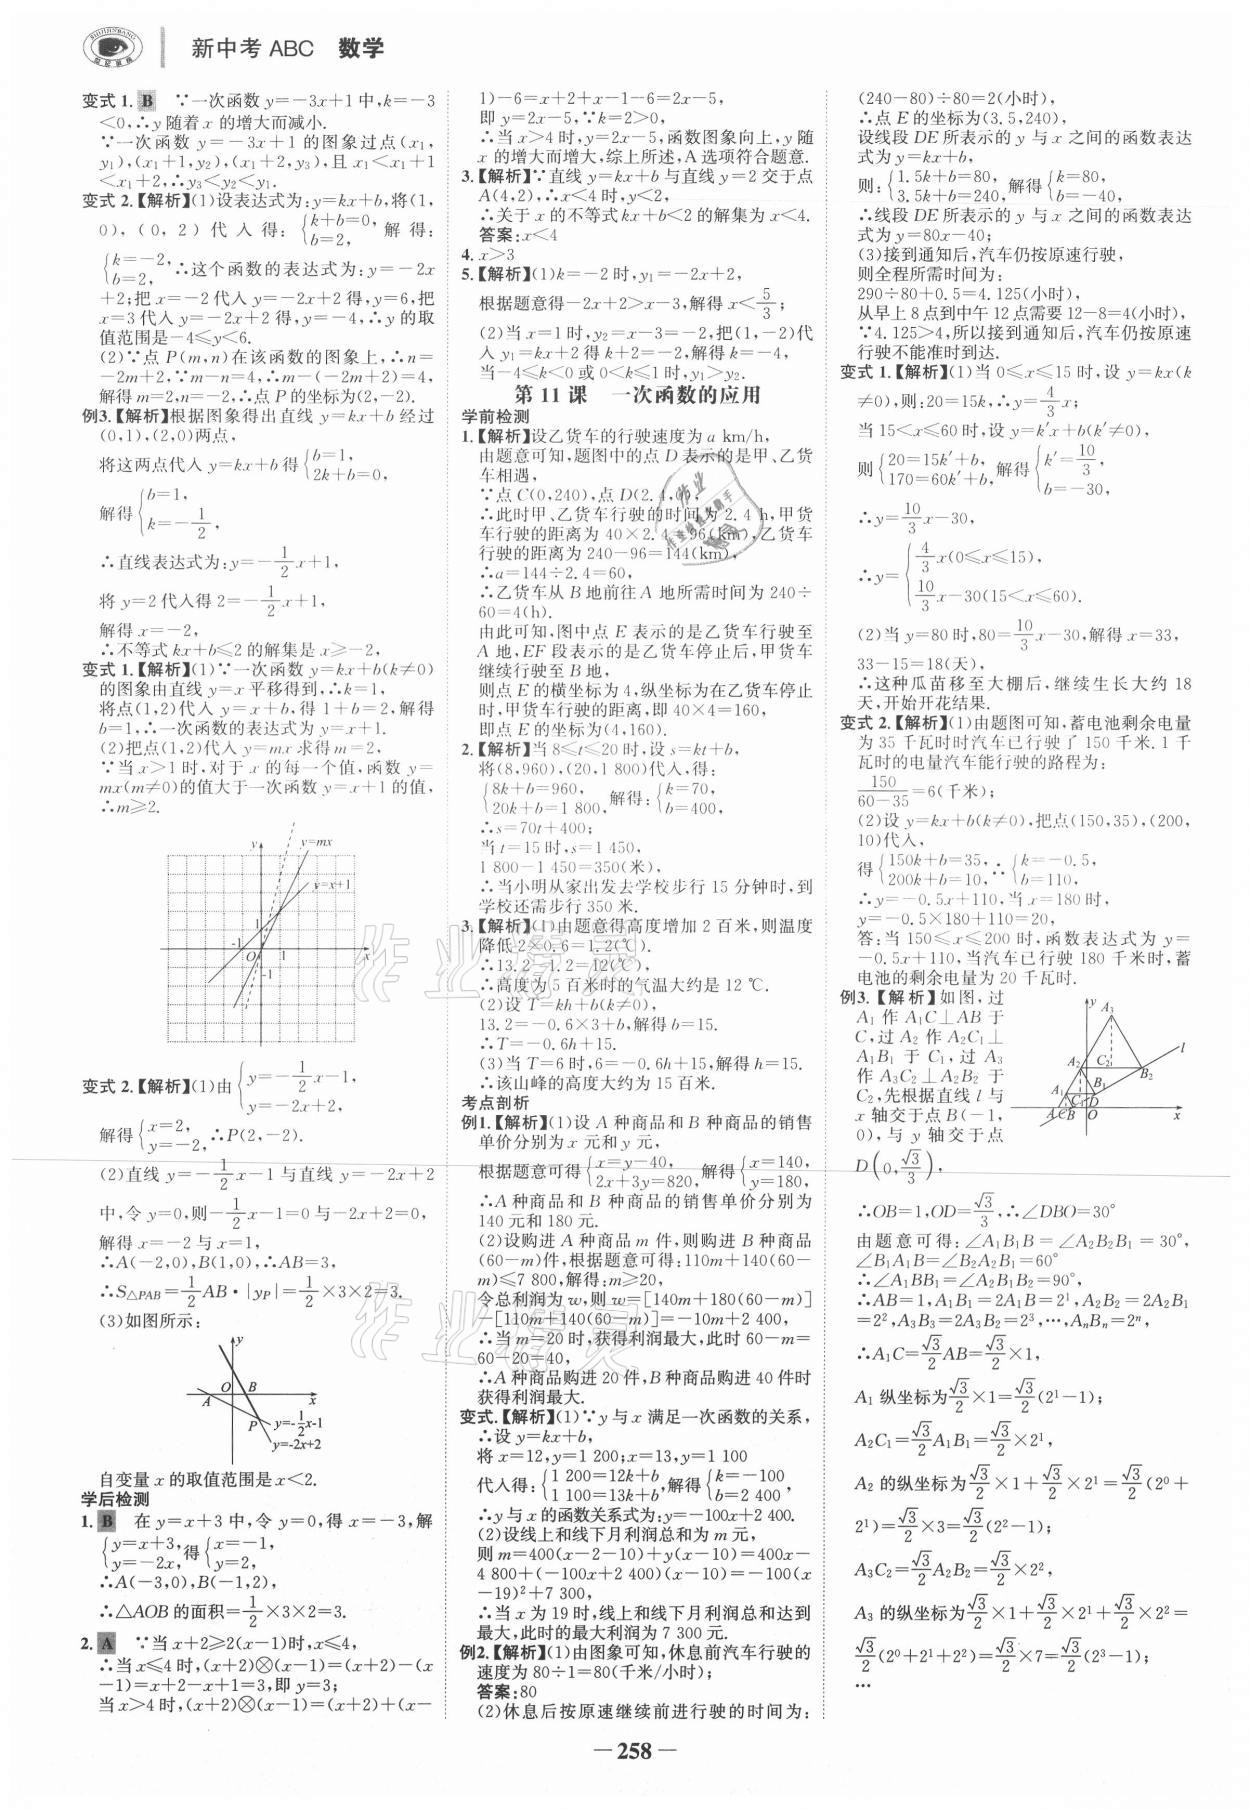 新中考 ABC 数学
变式 1. B ∵一次函数 y=-3x+1 中,k=-3
<0,∴y 随着 x 的增大而减小.
∵一次函数 y=-3x+1 的图象过点(x₁,
y₁),(x₁+1,y₂),(x₁+2,y₃),且 x₁<x₁+1
<x₁+2,∴y₃<y₂<y₁.
变式 2.【解析】(1)设表达式为:y=kx+b,将(1,
0),(0,2)代入得:{k+b=0, b=2, 解得:
{k=-2, b=2, ∴这个函数的表达式为:y=-2x
+2;把 x=-2代入 y=-2x+2 得,y=6,把
x=3代入 y=-2x+2得,y=-4,∴y 的取
值范围是-4≤y<6.
(2)∵点 P(m,n)在该函数的图象上,∴n=
-2m+2,∵m-n=4,∴m-(-2m+2)=4,
解得 m=2,n=-2,∴点 P 的坐标为(2,-2).
例3.【解析】根据图象得出直线 y=kx+b 经过
(0,1),(2,0)两点,
将这两点代入 y=kx+b得{b=1, 2k+b=0,
解得{b=1, k=-1/2,
∴直线表达式为:y=-1/2x+1,
将 y=2代入得 2=-1/2x+1,
解得 x=-2,
∴不等式 kx+b≤2的解集是 x≥-2,
变式 1.【解析】(1)∵一次函数 y=kx+b(k≠0)
的图象由直线 y=x 平移得到,∴k=1,
将点(1,2)代入 y=x+b,得 1+b=2,解得
b=1,∴一次函数的表达式为 y=x+1.
(2)把点(1,2)代入 y=mx 求得 m=2,
∵当 x>1 时,对于 x 的每一个值,函数 y=
mx(m≠0)的值大于一次函数 y=x+1 的值,
∴m≥2.
y
y=mx
y=x+1
1
-1
O
1
x
-1
变式 2.【解析】(1)由{y=-1/2x-1, y=-2x+2,
解得{x=2, y=-2, ∴P(2,-2).
(2)直线 y=-1/2x-1 与直线 y=-2x+2
中,令 y=0,则-1/2x-1=0与-2x+2=0,
解得 x=-2 与 x=1,
∴A(-2,0),B(1,0),∴AB=3,
∴S△PAB=1/2AB·|yP|=1/2×3×2=3.
(3)如图所示:
y
O
B
A
x
P
y=-1/2x-1
y=-2x+2
自变量 x 的取值范围是 x<2.
学后检测
1. B 在 y=x+3 中,令 y=0,得 x=-3,解
{y=x+3, y=-2x, 得{x=-1, y=2,
∴A(-3,0),B(-1,2),
∴△AOB 的面积=1/2×3×2=3.
2. A ∵当 x+2≥2(x-1)时,x≤4,
∴当 x≤4 时,(x+2)⊗(x-1)=(x+2)-(x
-1)=x+2-x+1=3,即 y=3;
当 x>4 时,(x+2)⊗(x-1)=(x+2)+(x-
1)-6=x+2+x-1-6=2x-5,
即 y=2x-5,∵k=2>0,
∴当 x>4 时,y=2x-5,函数图象向上,y 随
x 的增大而增大,综上所述,A 选项符合题意.
3.【解析】∵直线 y=kx+b 与直线 y=2 交于点
A(4,2),∴x<4时,y<2,
∴关于 x 的不等式 kx+b<2 的解集为 x<4.
答案:x<4
4. x>3
5.【解析】(1)k=-2 时,y₁=-2x+2,
根据题意得-2x+2>x-3,解得 x<5/3;
(2)当 x=1时,y₂=x-3=-2,把(1,-2)代
入 y₁=kx+2 得 k+2=-2,解得 k=-4,
当-4≤k<0 或 0<k≤1 时,y₁>y₂.
第 11 课 一次函数的应用
学前检测
1.【解析】设乙货车的行驶速度为 a km/h,
由题意可知,题图中的点 D 表示的是甲、乙货
车相遇,
∵点 C(0,240),点 D(2.4,0),
∴此时甲、乙货车行驶的时间为 2.4 h,甲货
车行驶的距离为 40×2.4=96(km),乙货车
行驶的距离为 240-96=144(km),
∴a=144÷2.4=60,
∴乙货车从 B 地前往 A 地所需时间为 240÷
60=4(h).
由此可知,图中点 E 表示的是乙货车行驶至
A 地,EF 段表示的是乙货车停止后,甲货车
继续行驶至 B 地,
则点 E 的横坐标为 4,纵坐标为在乙货车停止
时,甲货车行驶的距离,即 40×4=160,
即点 E 的坐标为(4,160).
2.【解析】当 8≤t≤20时,设 s=kt+b,
将(8,960),(20,1 800)代入,得:
{8k+b=960, 20k+b=1 800, 解得:{k=70, b=400,
∴s=70t+400;
当 t=15 时,s=1 450,
1 800-1 450=350(米),
∴当小明从家出发去学校步行 15 分钟时,到
学校还需步行 350 米.
3.【解析】(1)由题意得高度增加 2 百米,则温度
降低 2×0.6=1.2(℃).
∴13.2-1.2=12(℃),
∴高度为 5 百米时的气温大约是 12 ℃.
(2)设 T=kh+b(k≠0),
13.2=-0.6×3+b,解得 b=15.
∴T=-0.6h+15.
(3)当 T=6 时,6=-0.6h+15,解得 h=15.
∴该山峰的高度大约为 15 百米.
考点剖析
例1.【解析】(1)设 A 种商品和 B 种商品的销售
单价分别为 x 元和 y 元,
根据题意可得{x=y-40, 2x+3y=820, 解得{x=140, y=180,
∴A 种商品和 B 种商品的销售单价分别为
140 元和 180 元.
(2)设购进 A 种商品 m 件,则购进 B 种商品
(60-m)件,根据题意可得:110m+140(60-
m)≤7 800,解得:m≥20,
令总利润为 w,则 w=[140m+180(60-m)]
-[110m+140(60-m)]=-10m+2 400,
∴当 m=20 时,获得利润最大,此时 60-m=
60-20=40,
∴A 种商品购进 20 件,B 种商品购进 40 件时
获得利润最大.
变式.【解析】(1)∵y 与 x 满足一次函数的关系,
∴设 y=kx+b,
将 x=12,y=1 200;x=13,y=1 100
代入得:{1 200=12k+b, 1 100=13k+b, 解得{k=-100, b=2 400,
∴y 与 x 的函数关系式为:y=-100x+2 400.
(2)设线上和线下月利润总和为 m 元,
则 m=400(x-2-10)+y(x-10)=400x-
4 800+(-100x+2 400)(x-10)=-100(x
-19)²+7 300,
∴当 x 为 19 时,线上和线下月利润总和达到
最大,此时的最大利润为 7 300 元.
例2.【解析】(1)由图象可知,休息前汽车行驶的
速度为 80÷1=80(千米/小时);
答案:80
(2)休息后按原速继续前进行驶的时间为:
(240-80)÷80=2(小时),
∴点 E 的坐标为(3.5,240),
设线段 DE 所表示的 y 与 x 之间的函数表达
式为 y=kx+b,
则:{1.5k+b=80, 3.5k+b=240, 解得{k=80, b=-40,
∴线段 DE 所表示的 y 与 x 之间的函数表达
式为 y=80x-40;
(3)接到通知后,汽车仍按原速行驶,
则全程所需时间为:
290÷80+0.5=4.125(小时),
从早上 8点到中午 12 点需要 12-8=4(小时),
∵4.125>4,所以接到通知后,汽车仍按原速
行驶不能准时到达.
变式 1.【解析】(1)当 0≤x≤15 时,设 y=kx(k
≠0),则:20=15k,∴y=4/3x;
当 15<x≤60 时,设 y=k′x+b(k′≠0),
则{20=15k′+b, 170=60k′+b, 解得{k′=10/3, b=-30,
∴y=10/3x-30,
∴y={4/3x(0≤x≤15), 10/3x-30(15<x≤60).
(2)当 y=80 时,80=10/3x-30,解得 x=33,
33-15=18(天),
∴这种瓜苗移至大棚后,继续生长大约 18
天,开始开花结果.
变式 2.【解析】(1)由题图可知,蓄电池剩余电量
为 35 千瓦时时汽车已行驶了 150 千米.1 千
瓦时的电量汽车能行驶的路程为:
150/(60-35)=6(千米);
(2)设 y=kx+b(k≠0),把点(150,35),(200,
10)代入,
得{150k+b=35, 200k+b=10, ∴{k=-0.5, b=110,
∴y=-0.5x+110,当 x=180时,
y=-0.5×180+110=20,
答:当 150≤x≤200 时,函数表达式为 y=
-0.5x+110,当汽车已行驶 180 千米时,蓄
电池的剩余电量为 20 千瓦时.
例3.【解析】如图,过
A₁ 作 A₁C⊥AB 于
C,过 A₂ 作 A₂C₁⊥
A₁B₁ 于 C₁,过 A₃
作 A₃C₂⊥A₂B₂ 于
C₂,先根据直线 l 与
x 轴交于点 B(-1,
0),与 y 轴交于点
D(0,√3/3),
y
A₃
l
A₂
C₂
B₂
A₁
B₁
C₁
D
A
C
B
O
x
∴OB=1,OD=√3/3,∴∠DBO=30°
由题意可得:∠A₁B₁B=∠A₂B₂B₁=30°,
∠B₁A₁B=∠B₂A₂B₁=60°
∴∠A₁BB₁=∠A₂B₁B₂=90°,
∴AB=1,A₁B₁=2A₁B=2¹,A₂B₂=2A₂B₁
=2²,A₃B₃=2A₃B₂=2³,…,AₙBₙ=2ⁿ,
∴A₁C=√3/2AB=√3/2×1,
A₁ 纵坐标为√3/2×1=√3/2(2¹-1);
A₂C₁=√3/2A₁B₁=√3/2×2¹,
A₂ 的纵坐标为√3/2×1+√3/2×2¹=√3/2(2⁰+
2¹)=√3/2×3=√3/2(2²-1);
A₃C₂=√3/2A₂B₂=√3/2×2²,
A₃ 的纵坐标为√3/2×1+√3/2×2¹+√3/2×2²=
√3/2(2⁰+2¹+2²)=√3/2×7=√3/2(2³-1);
…
作业精灵
作业精灵
— 258 —